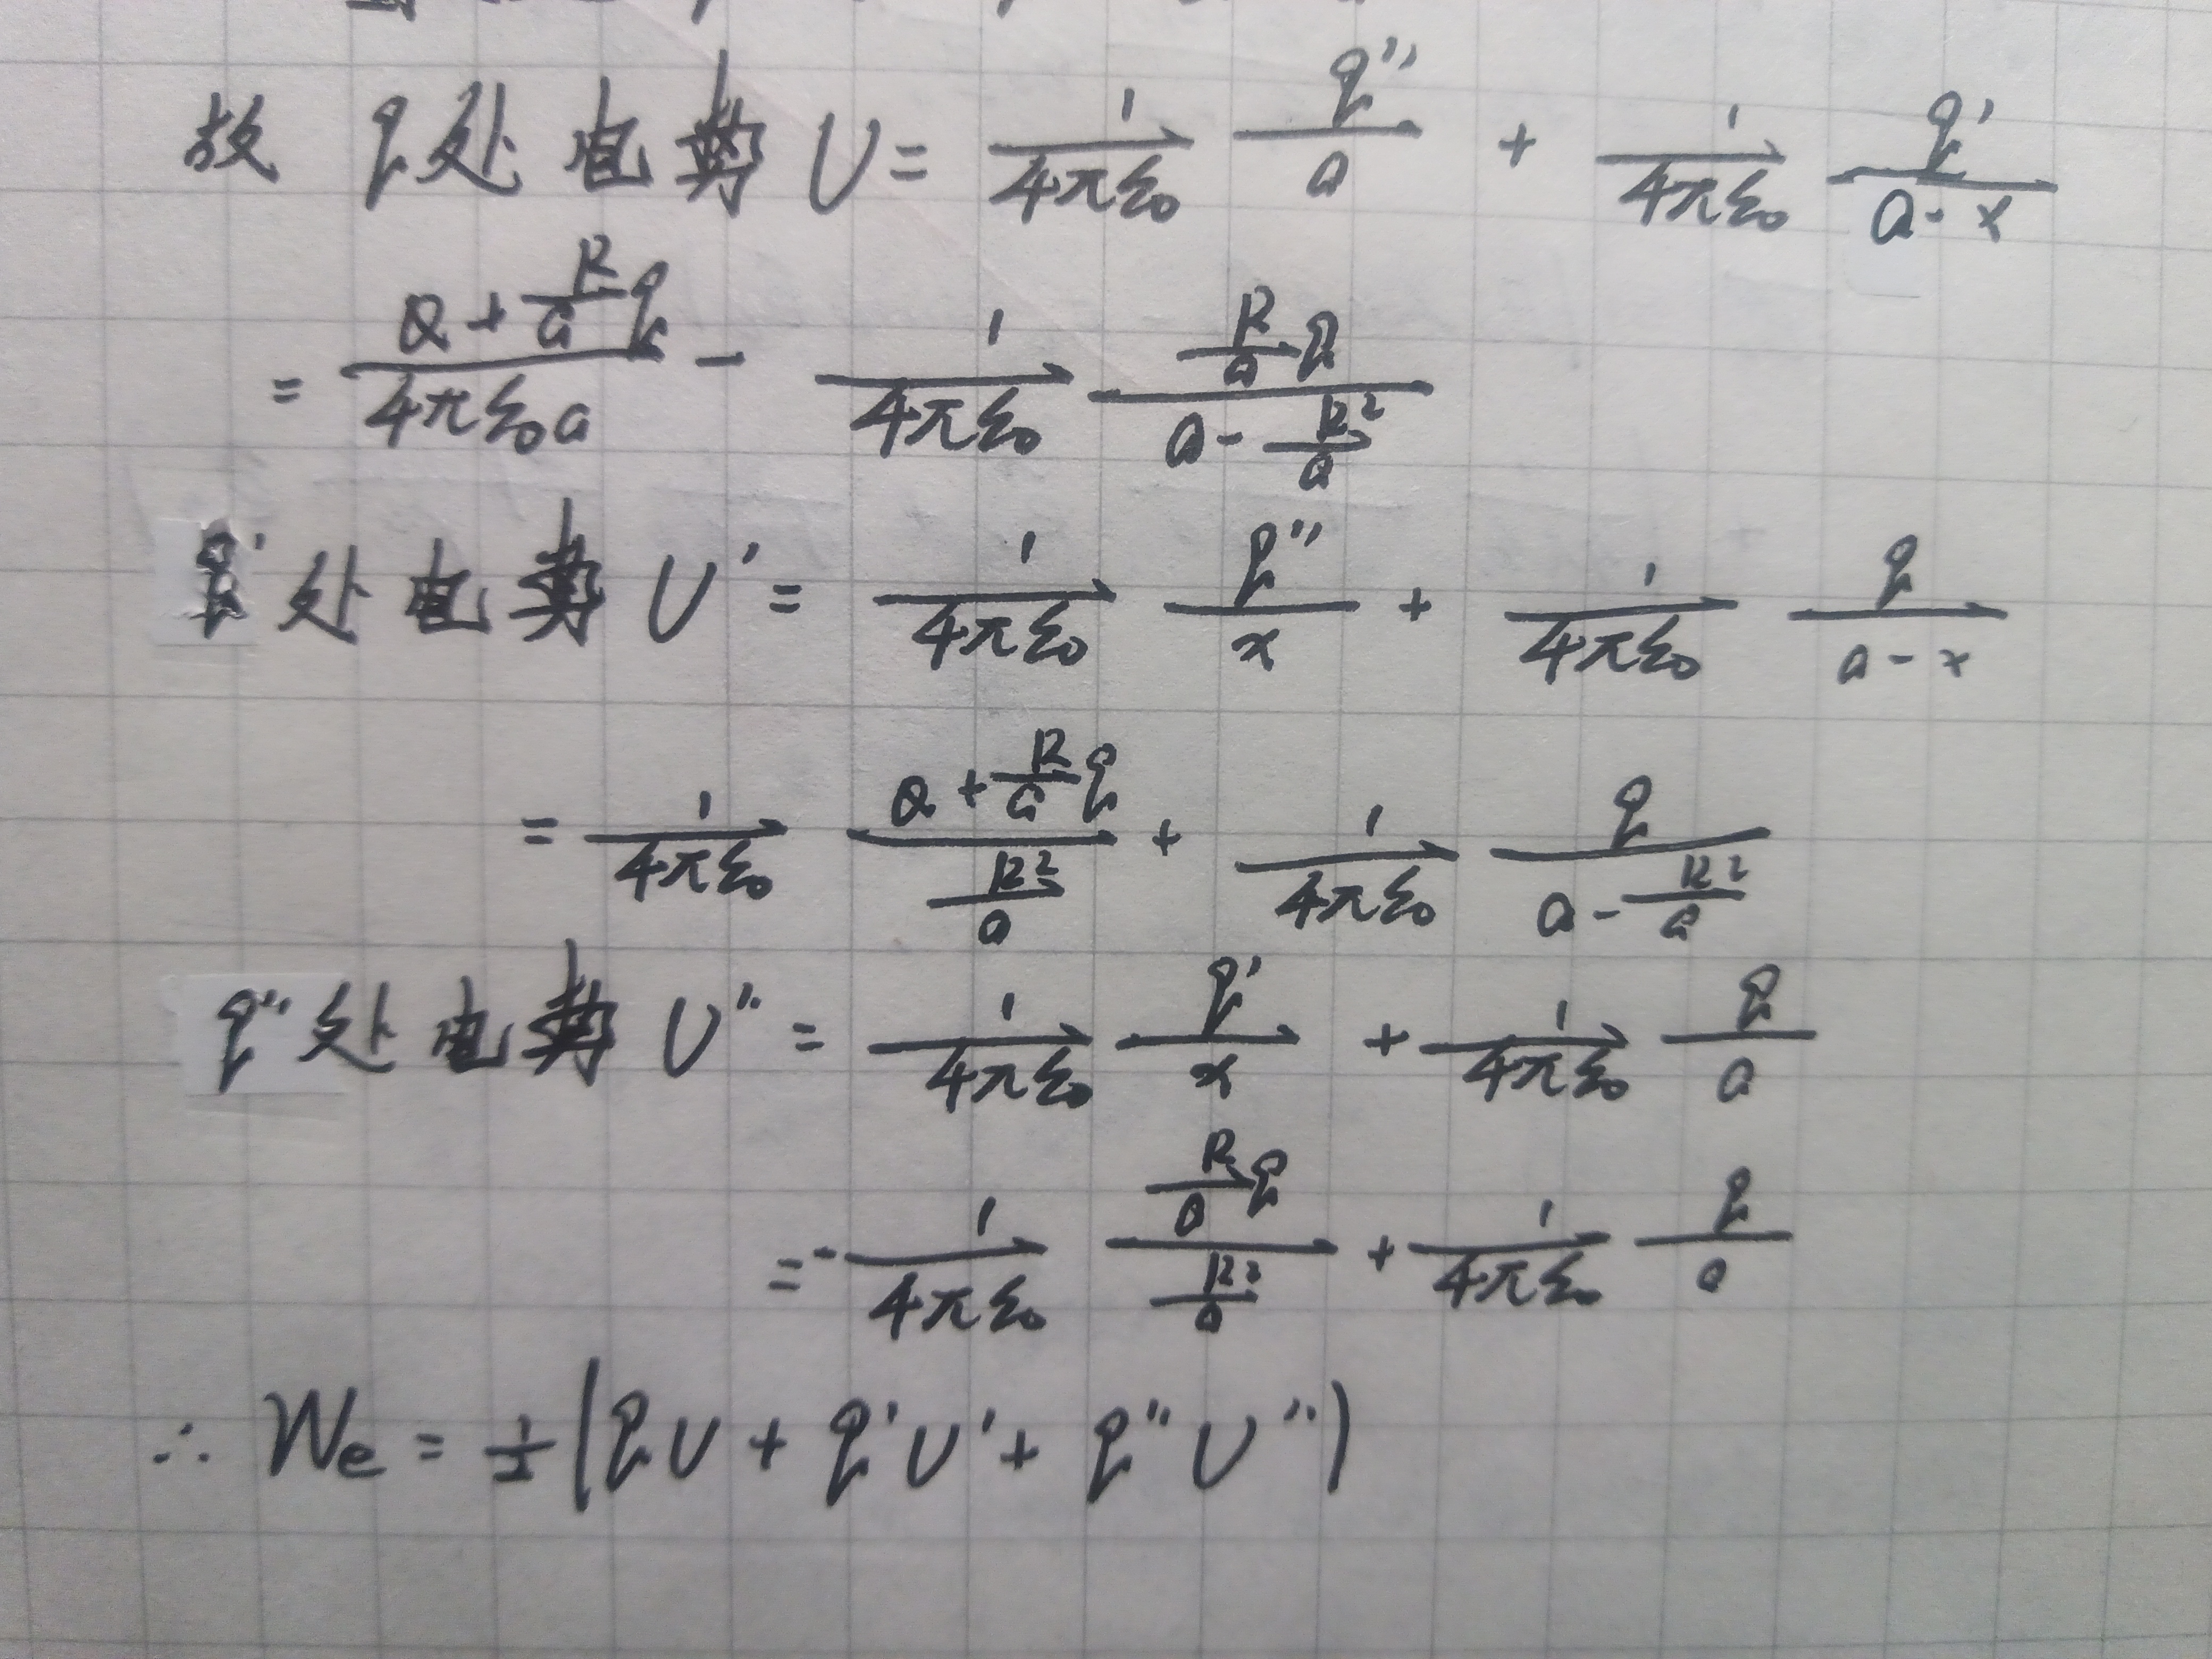 故 q处 电势 U = \frac{1}{4πε₀} \frac{q''}{a} + \frac{1}{4πε₀} \frac{q'}{a-x}
= \frac{Q+\frac{R}{a}q}{4πε₀a} - \frac{1}{4πε₀} \frac{\frac{R}{a}q}{a-\frac{R²}{a}}
q'处电势 U' = \frac{1}{4πε₀} \frac{q''}{x} + \frac{1}{4πε₀} \frac{q}{a-x}
= \frac{1}{4πε₀} \frac{Q+\frac{R}{a}q}{\frac{R²}{a}} + \frac{1}{4πε₀} \frac{q}{a-\frac{R²}{a}}
q''处电势 U'' = \frac{1}{4πε₀} \frac{q'}{x} + \frac{1}{4πε₀} \frac{q}{a}
= -\frac{1}{4πε₀} \frac{\frac{R}{a}q}{\frac{R²}{a}} + \frac{1}{4πε₀} \frac{q}{a}
∴ We = \frac{1}{2}(qU + q'U' + q''U'')